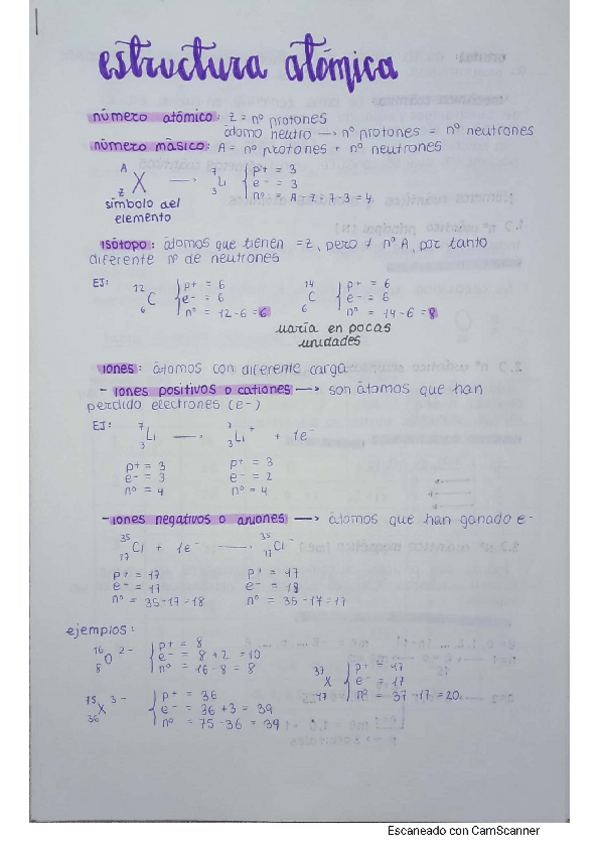 estructura atómica
número atómico: Z = nº protones
átomo neutro → nº protones = nº neutrones
número másico: A = nº protones + nº neutrones
A
Z X → 7 3 Li { p+ = 3
e- = 3
nº = A - Z = 7-3 = 4
símbolo del
elemento
isótopo: átomos que tienen = Z, pero ≠ nº A, por tanto
diferente nº de neutrones
EJ: 12 6 C { p+ = 6
e- = 6
nº = 12-6 = 6
14 6 C { p+ = 6
e- = 6
nº = 14-6 = 8
varía en pocas
unidades
iones: átomos con diferente carga
- iones positivos o cationes → son átomos que han
perdido electrones (e-)
EJ: 7 3 Li → 7 3 Li + + 1e-
p+ = 3
e- = 3
nº = 4
p+ = 3
e- = 2
nº = 4
- iones negativos o aniones → átomos que han ganado e-
35 17 Cl + 1e- → 35 17 Cl -
p+ = 17
e- = 17
nº = 35-17 = 18
p+ = 17
e- = 18
nº = 35-17 = 17
ejemplos:
16 8 O 2- { p+ = 8
e- = 8+2 = 10
nº = 16-8 = 8
37 17 X { p+ = 17
e- = 17
nº = 37-17 = 20
75 36 X 3- { p+ = 36
e- = 36+3 = 39
nº = 75-36 = 39
Escaneado con CamScanner